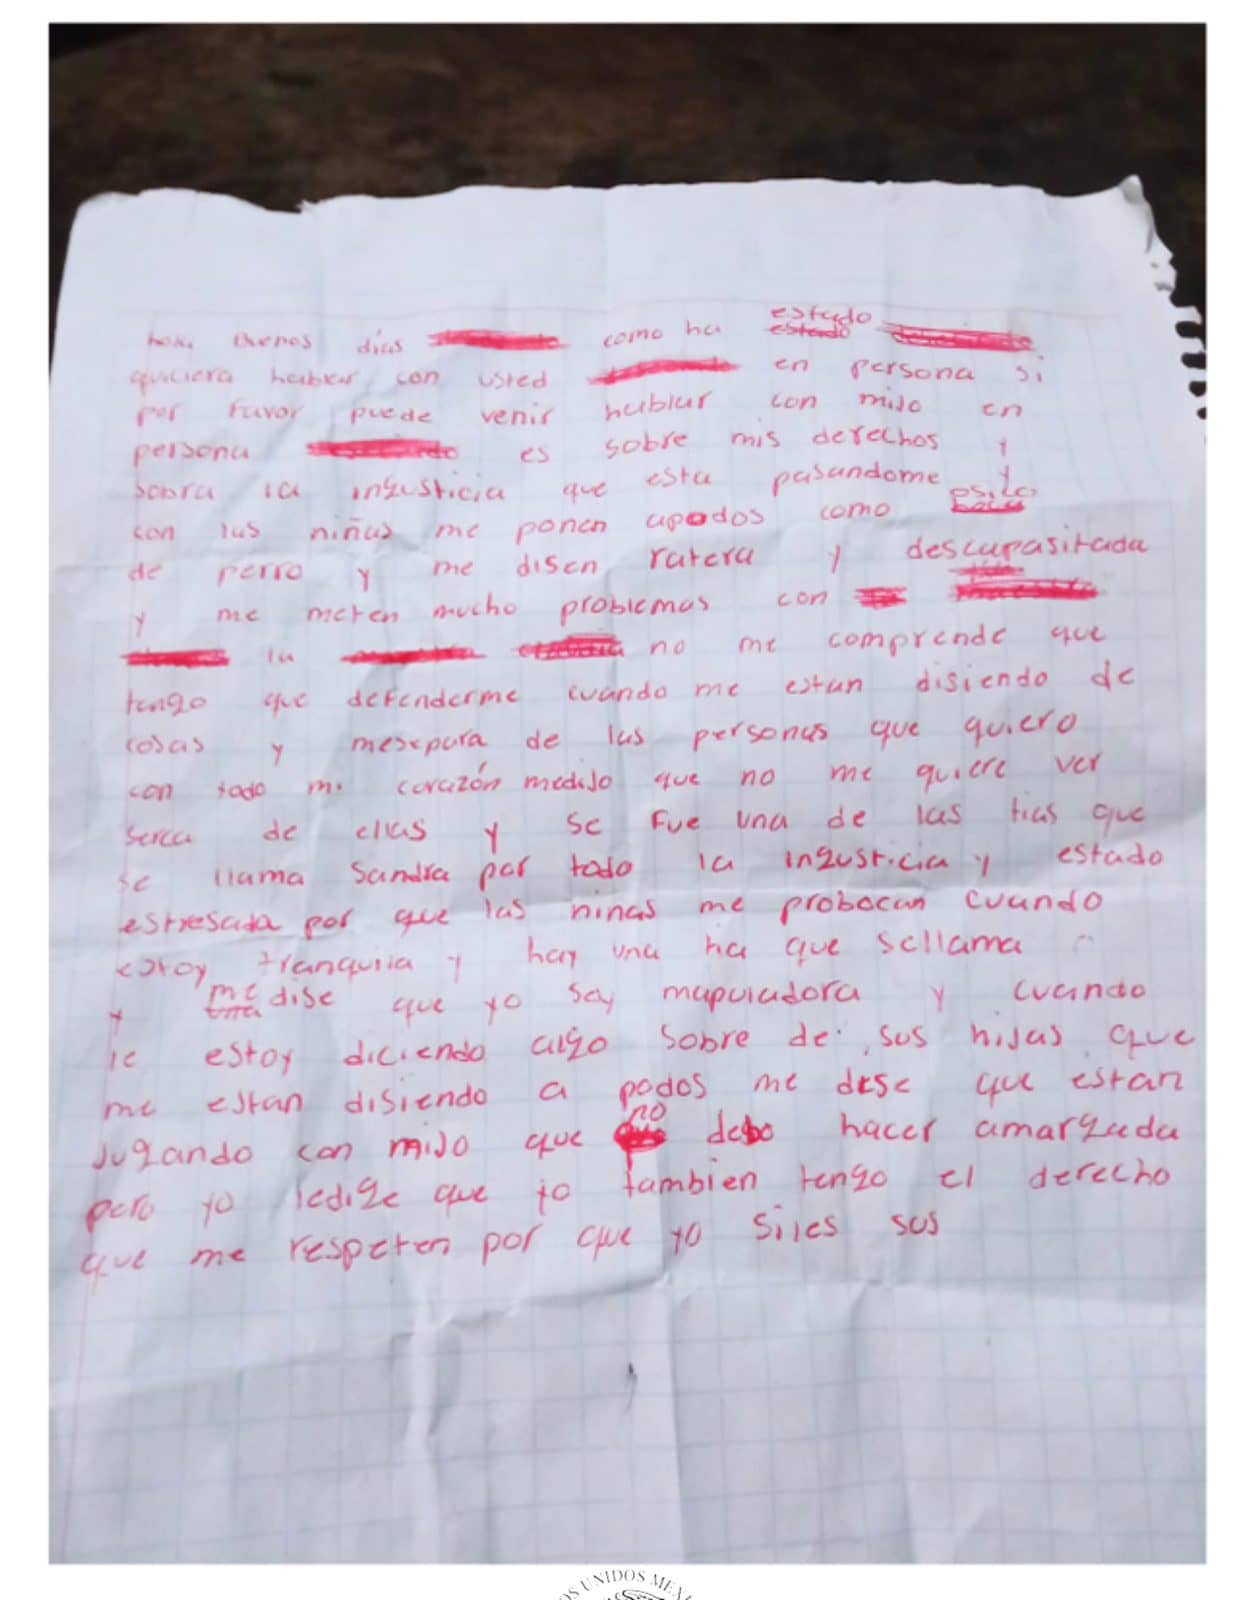 hola Buenos días como ha estado
estado
quiciera hablar con usted en persona si
por favor puede venir hablar con mijo en
persona es sobre mis derechos y
sobra la ingusticia que esta pasandome y
con las niñas me ponen apodos como osico
de perro y me disen ratera y descapasitada
y me meten mucho problemas con
la no me comprende que
tengo que defenderme cuando me estan disiendo de
cosas y mesepara de las personas que quiero
con todo mi corazón medijo que no me quiere ver
serca de ellas y se fue una de las tias que
se llama Sandra por todo la ingusticia y estado
estresada por que las ninas me probocan cuando
estoy tranquila y hay una ha que sellama
y me dise que yo soy mapuladora y cuando
le estoy diciendo algo sobre de sus hijas que
me estan disiendo a podos me dise que estan
jugando con mijo que no debo hacer amargada
pero yo ledige que yo tambien tengo el derecho
que me respeten por que yo siles sus
OS UNIDOS MEX